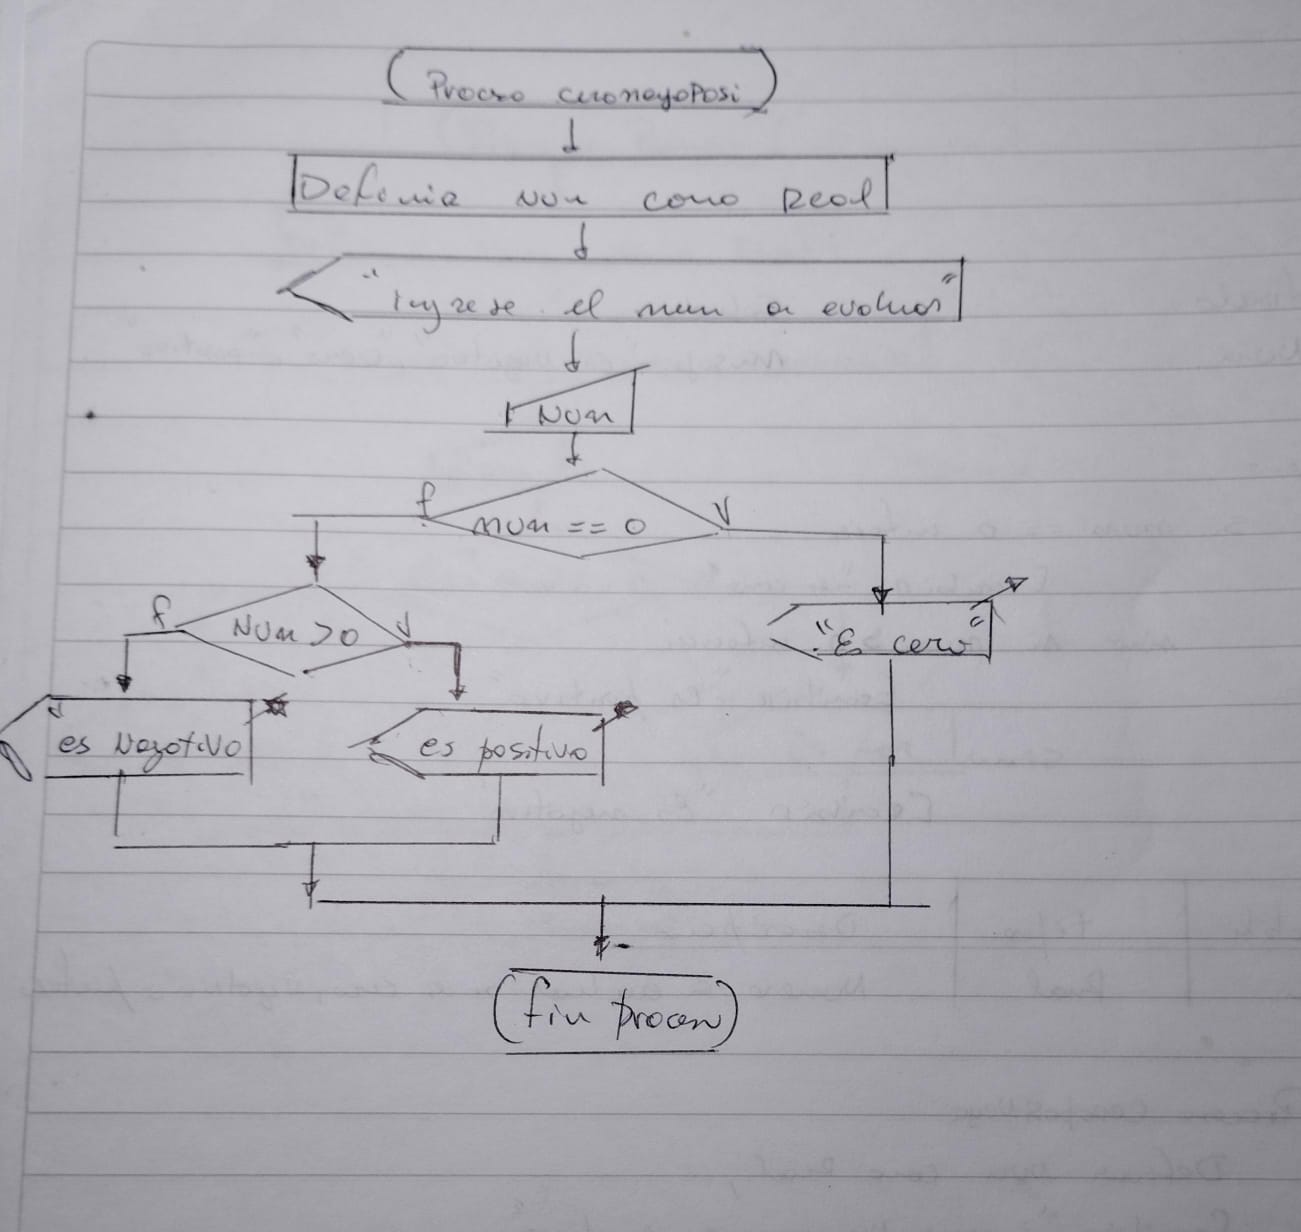 Proceso ceronegoposi
Definir Num como Real
"Ingrese el num a evaluar"
Num
f num == 0 V
f Num > 0 V
"Es cero"
es Negativo
es positivo
fin proceso